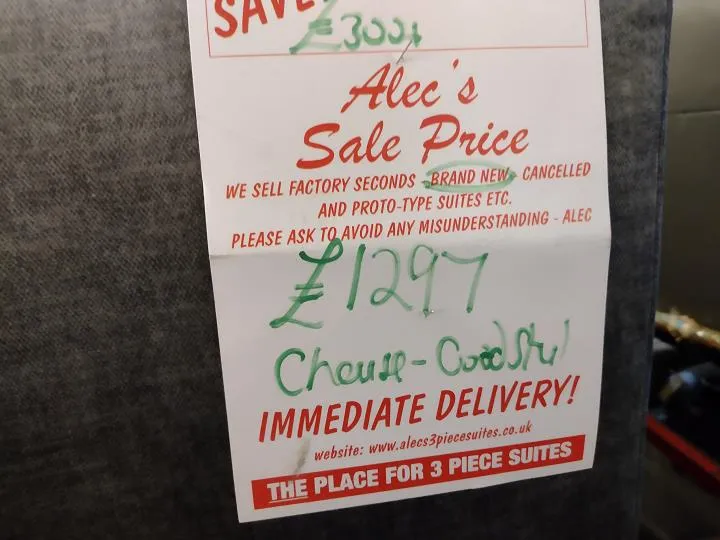 SAVE
£300
Alec's
Sale Price
WE SELL FACTORY SECONDS - BRAND NEW - CANCELLED
AND PROTO-TYPE SUITES ETC.
PLEASE ASK TO AVOID ANY MISUNDERSTANDING - ALEC
£1297
IMMEDIATE DELIVERY!
website: www.alecs3piecesuites.co.uk
THE PLACE FOR 3 PIECE SUITES